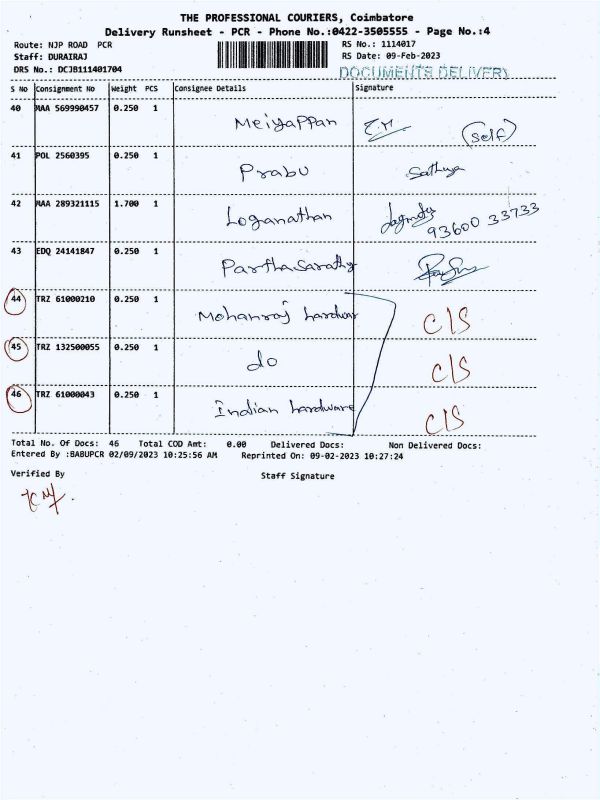 THE PROFESSIONAL COURIERS, Coimbatore
Delivery Runsheet - PCR - Phone No.:0422-3505555 - Page No.:4
Route: NJP ROAD PCR RS No.: 1114017
Staff: DURAIRAJ RS Date: 09-Feb-2023
DRS No.: DCJB111401704 DOCUMENTS DELIVERY
S No Consignment No Weight PCS Consignee Details Signature
40 MAA 569990457 0.250 1 Meiyappan (self)
41 POL 2560395 0.250 1 Prabu Sathya
42 MAA 289321115 1.700 1 Loganathan 93600 33733
43 EDQ 24141847 0.250 1 Parthasarathy
44 TRZ 61000210 0.250 1 Mohanraj hardwar C/S
45 TRZ 132500055 0.250 1 do C/S
46 TRZ 61000043 0.250 1 Indian hardware C/S
Total No. Of Docs: 46 Total COD Amt: 0.00 Delivered Docs: Non Delivered Docs:
Entered By :BABUPCR 02/09/2023 10:25:56 AM Reprinted On: 09-02-2023 10:27:24
Verified By Staff Signature